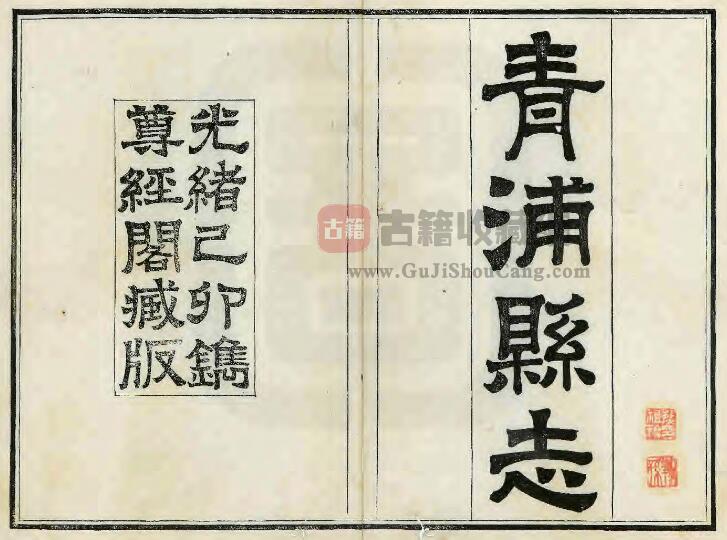 青浦縣志
光緒己卯鐫
尊經閣藏版
古籍 古籍收藏
www.GuJiShouCang.com